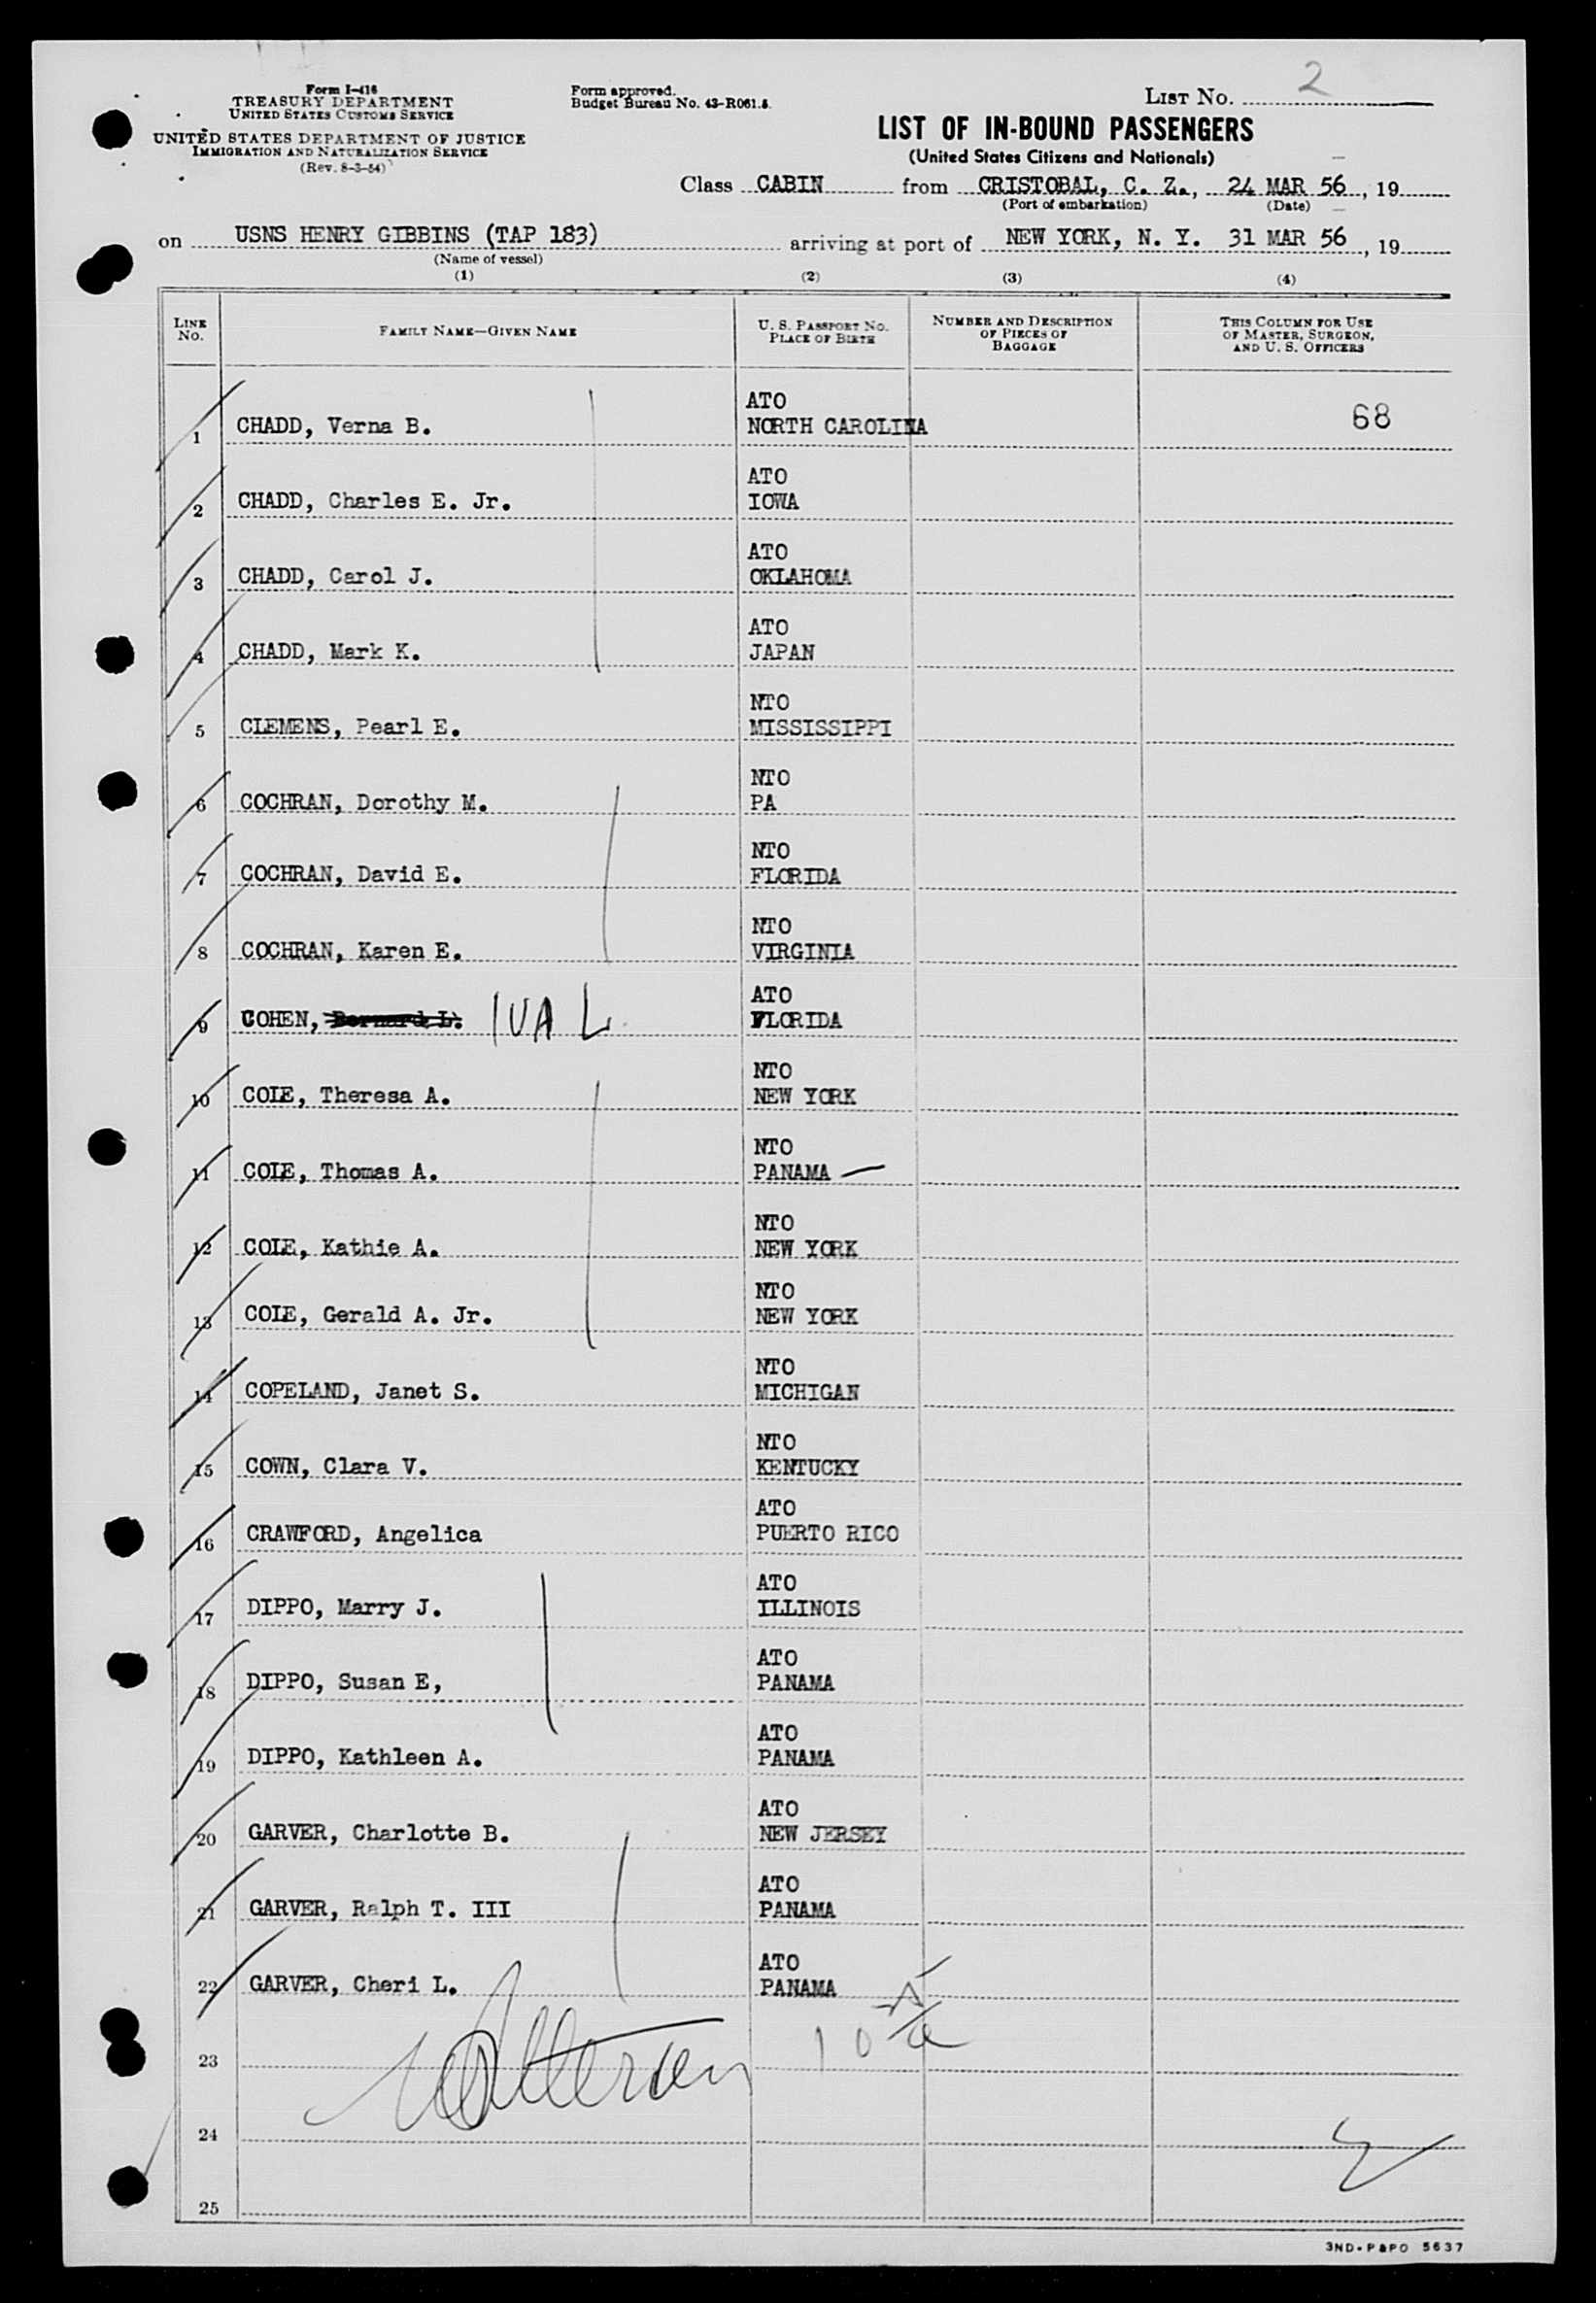 Form I-416
TREASURY DEPARTMENT
UNITED STATES CUSTOMS SERVICE
UNITED STATES DEPARTMENT OF JUSTICE
IMMIGRATION AND NATURALIZATION SERVICE
(Rev. 8-3-54)
Form approved.
Budget Bureau No. 43-R061.5.
LIST NO. 2
LIST OF IN-BOUND PASSENGERS
(United States Citizens and Nationals)
Class CABIN from CRISTOBAL, C. Z., 24 MAR 56, 19
(Port of embarkation) (Date)
on USNS HENRY GIBBINS (TAP 183) arriving at port of NEW YORK, N. Y. 31 MAR 56, 19
(Name of vessel)
(1) (2) (3) (4)
LINE NO. FAMILY NAME—GIVEN NAME U. S. PASSPORT NO. PLACE OF BIRTH NUMBER AND DESCRIPTION OF PIECES OF BAGGAGE THIS COLUMN FOR USE OF MASTER, SURGEON, AND U. S. OFFICERS
ATO
1 CHADD, Verna B. NORTH CAROLINA 68
ATO
2 CHADD, Charles E. Jr. IOWA
ATO
3 CHADD, Carol J. OKLAHOMA
ATO
4 CHADD, Mark K. JAPAN
NTO
5 CLEMENS, Pearl E. MISSISSIPPI
NTO
6 COCHRAN, Dorothy M. PA
NTO
7 COCHRAN, David E. FLORIDA
NTO
8 COCHRAN, Karen E. VIRGINIA
ATO
9 COHEN, Bernard L. IVA L. FLORIDA
NTO
10 COLE, Theresa A. NEW YORK
NTO
11 COLE, Thomas A. PANAMA —
NTO
12 COLE, Kathie A. NEW YORK
NTO
13 COLE, Gerald A. Jr. NEW YORK
NTO
14 COPELAND, Janet S. MICHIGAN
NTO
15 COWN, Clara V. KENTUCKY
ATO
16 CRAWFORD, Angelica PUERTO RICO
ATO
17 DIPPO, Marry J. ILLINOIS
ATO
18 DIPPO, Susan E, PANAMA
ATO
19 DIPPO, Kathleen A. PANAMA
ATO
20 GARVER, Charlotte B. NEW JERSEY
ATO
21 GARVER, Ralph T. III PANAMA
ATO
22 GARVER, Cheri L. PANAMA
23
24
25
3ND-P&PO 5637